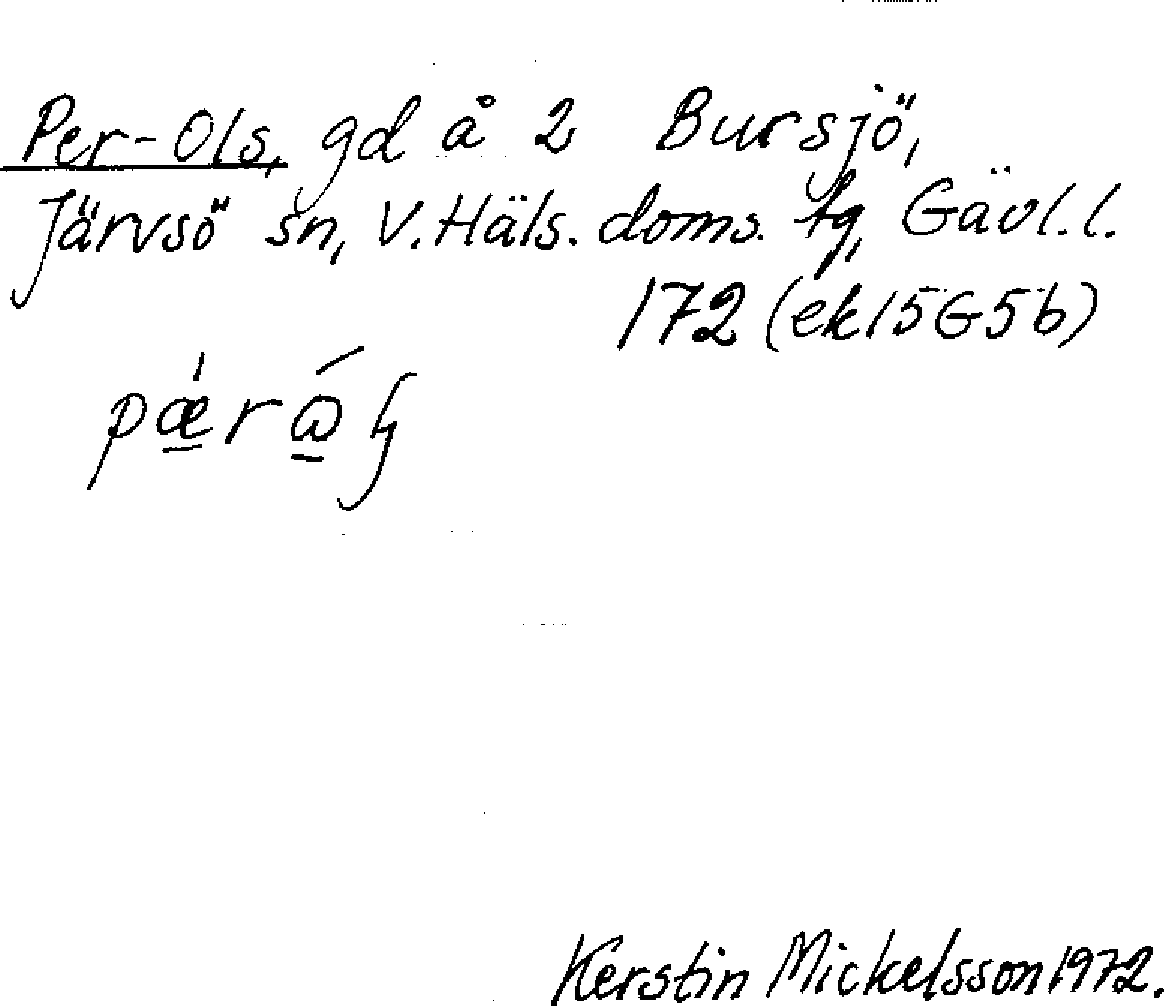 Per-Ols, gd å 2 Bursjö,
Järvsö sn, V. Häls. doms. tg, Gävl. l.
172 (ek 15G5b)
Kerstin Mickelsson 1972.